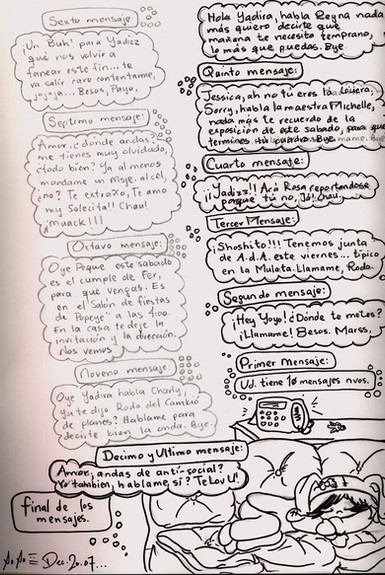 Sexto mensaje
¡Un Buh! para Yadizz
qué nos volvió a
fanear este fin... te
va salir caro contentarme,
jojojo... Besos, Payo.
Septimo mensaje:
Amor, ¿donde andas?
me tienes muy olvidado,
¿todo bien? Ya al menos
mandame un msje. al cel,
¿no? Te extraño, Te amo
my Solecito! Chau!
¡Muack!!!
Octavo mensaje:
Oye Peque este sabado
es el cumple de Fer,
para que vengas. Es
en el "Salón de fiestas
de Popeye" a las 4:00.
En la casa te deje la
invitación y la dirección.
Nos vemos
Noveno mensaje:
Oye Yadira habla Charly,
Ya te dijo Rodo del cambio
de planes? Hablame para
decirte bien la onda. Bye.
Decimo y Ultimo mensaje:
Amor, andas de anti-social?
Yo tambien, hablame, si? Te Lov U!
final de los
mensajes.
Dec. 20. 07...
Hola Yadira, habla Reyna nada
más quiero decirte que
mañana te necesito temprano,
lo más que puedas. Bye
Quinto mensaje:
Jessica, ah no tú eres la
Sorry, habla la maestra Michelle,
nada más te recuerdo de la
exposición de este sabado, para que
termines tu cuadro. Bye.
Cuarto mensaje:
¡¡Yadizz!! Acá Rosa reportandose
porque tú no, Jó! Chau.
Tercer Mensaje:
¡Shoshito!!! Tenemos junta
de A.D.A. este viernes... tipico
en la Mulata. Llamame, Roda.
Segundo mensaje:
¡Hey Yoyo! ¿Dónde te metes?
¡Llamame! Besos. Marss.
Primer mensaje:
Ud. tiene 10 mensajes nvos.